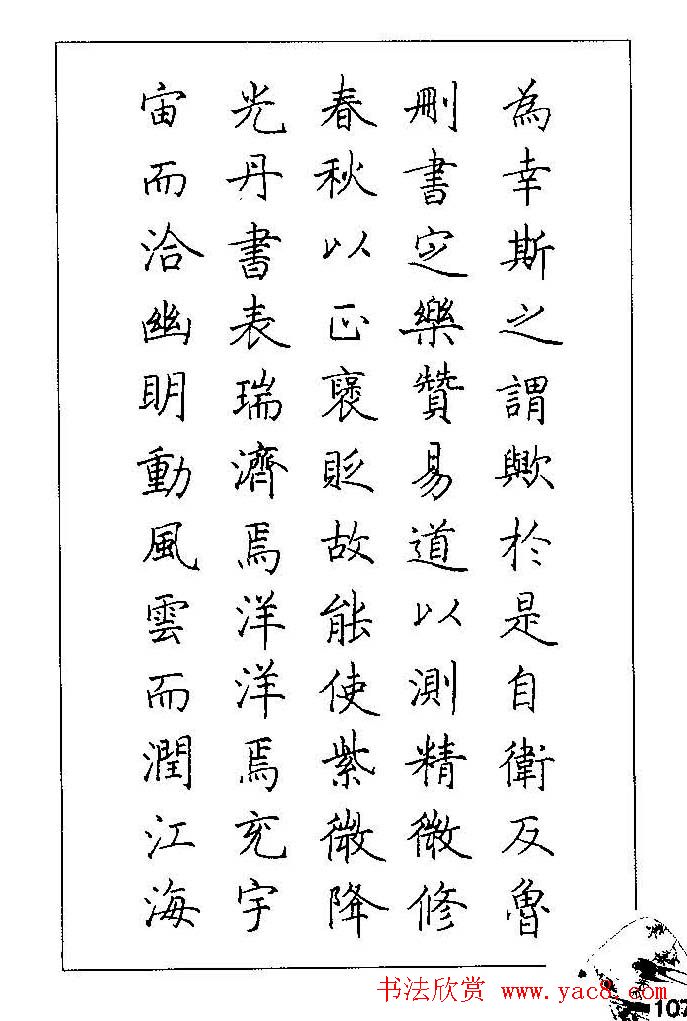 為幸斯之謂歟於是自衛反魯
刪書定樂贊易道以測精微修
春秋以正褒貶故能使紫微降
光丹書表瑞濟焉洋洋焉充宇
宙而洽幽明動風雲而潤江海
书法欣赏 www.yac8.com
107